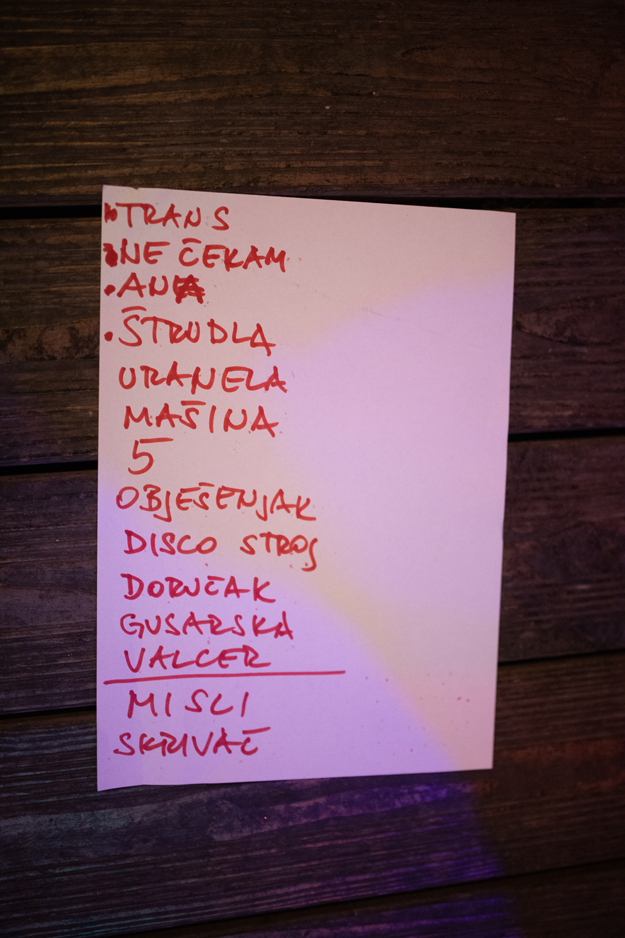 • TRANS
• NE ČEKAM
• ANA
• ŠTRUDLA
URANELA
MAŠINA
5
OBJEŠENJAK
DISCO STROJ
DORUČAK
GUSARSKA
VALCER
MISLI
SKRIVAČ